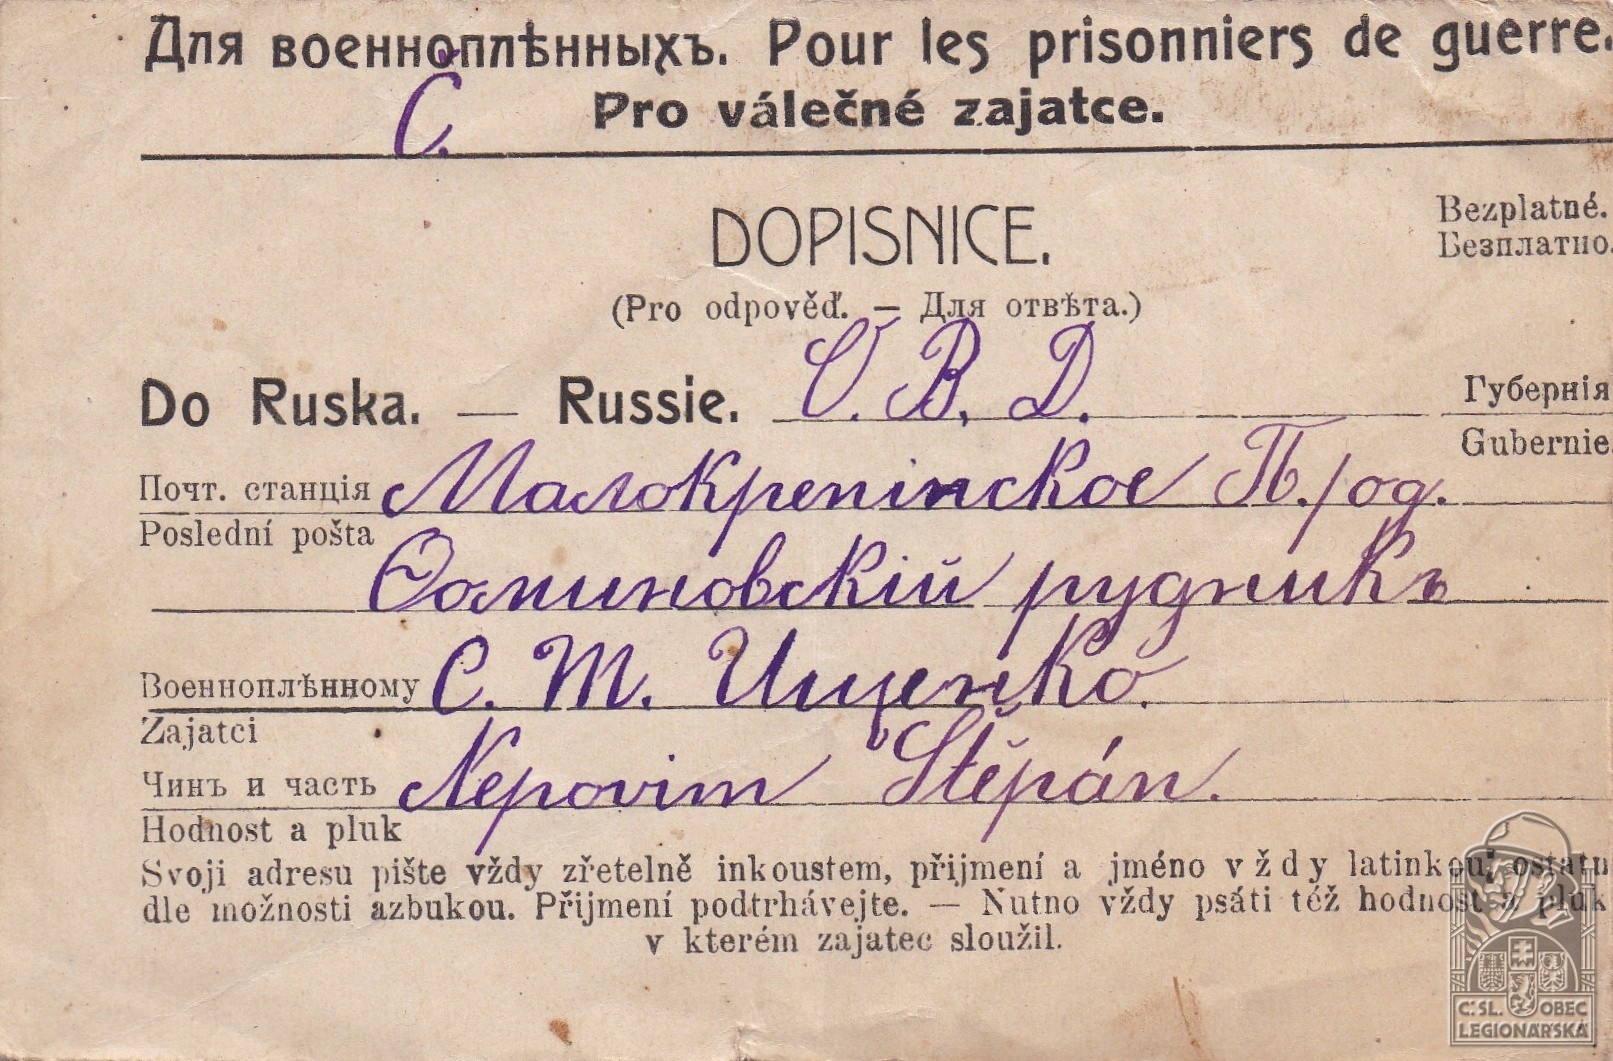 Для военноплѣнныхъ. Pour les prisonniers de guerre.
Č. Pro válečné zajatce.
DOPISNICE.
Bezplatné.
Безплатно.
(Pro odpověď. — Для отвѣта.)
Do Ruska. — Russie. O. B. D. Губернія
Gubernie.
Почт. станція Малокрепінское П./од.
Poslední pošta
Фоминовскій рудникъ
Военноплѣнному С. Т. Ищенко.
Zajatci
Чинъ и часть Nepovim Štěpán.
Hodnost a pluk
Svoji adresu pište vždy zřetelně inkoustem, přijmení a jméno vždy latinkou, ostatn
dle možnosti azbukou. Přijmení podtrhávejte. — Nutno vždy psáti též hodnost a pluk
v kterém zajatec sloužil.
Č. SL. OBEC
LEGIONÁŘSKÁ